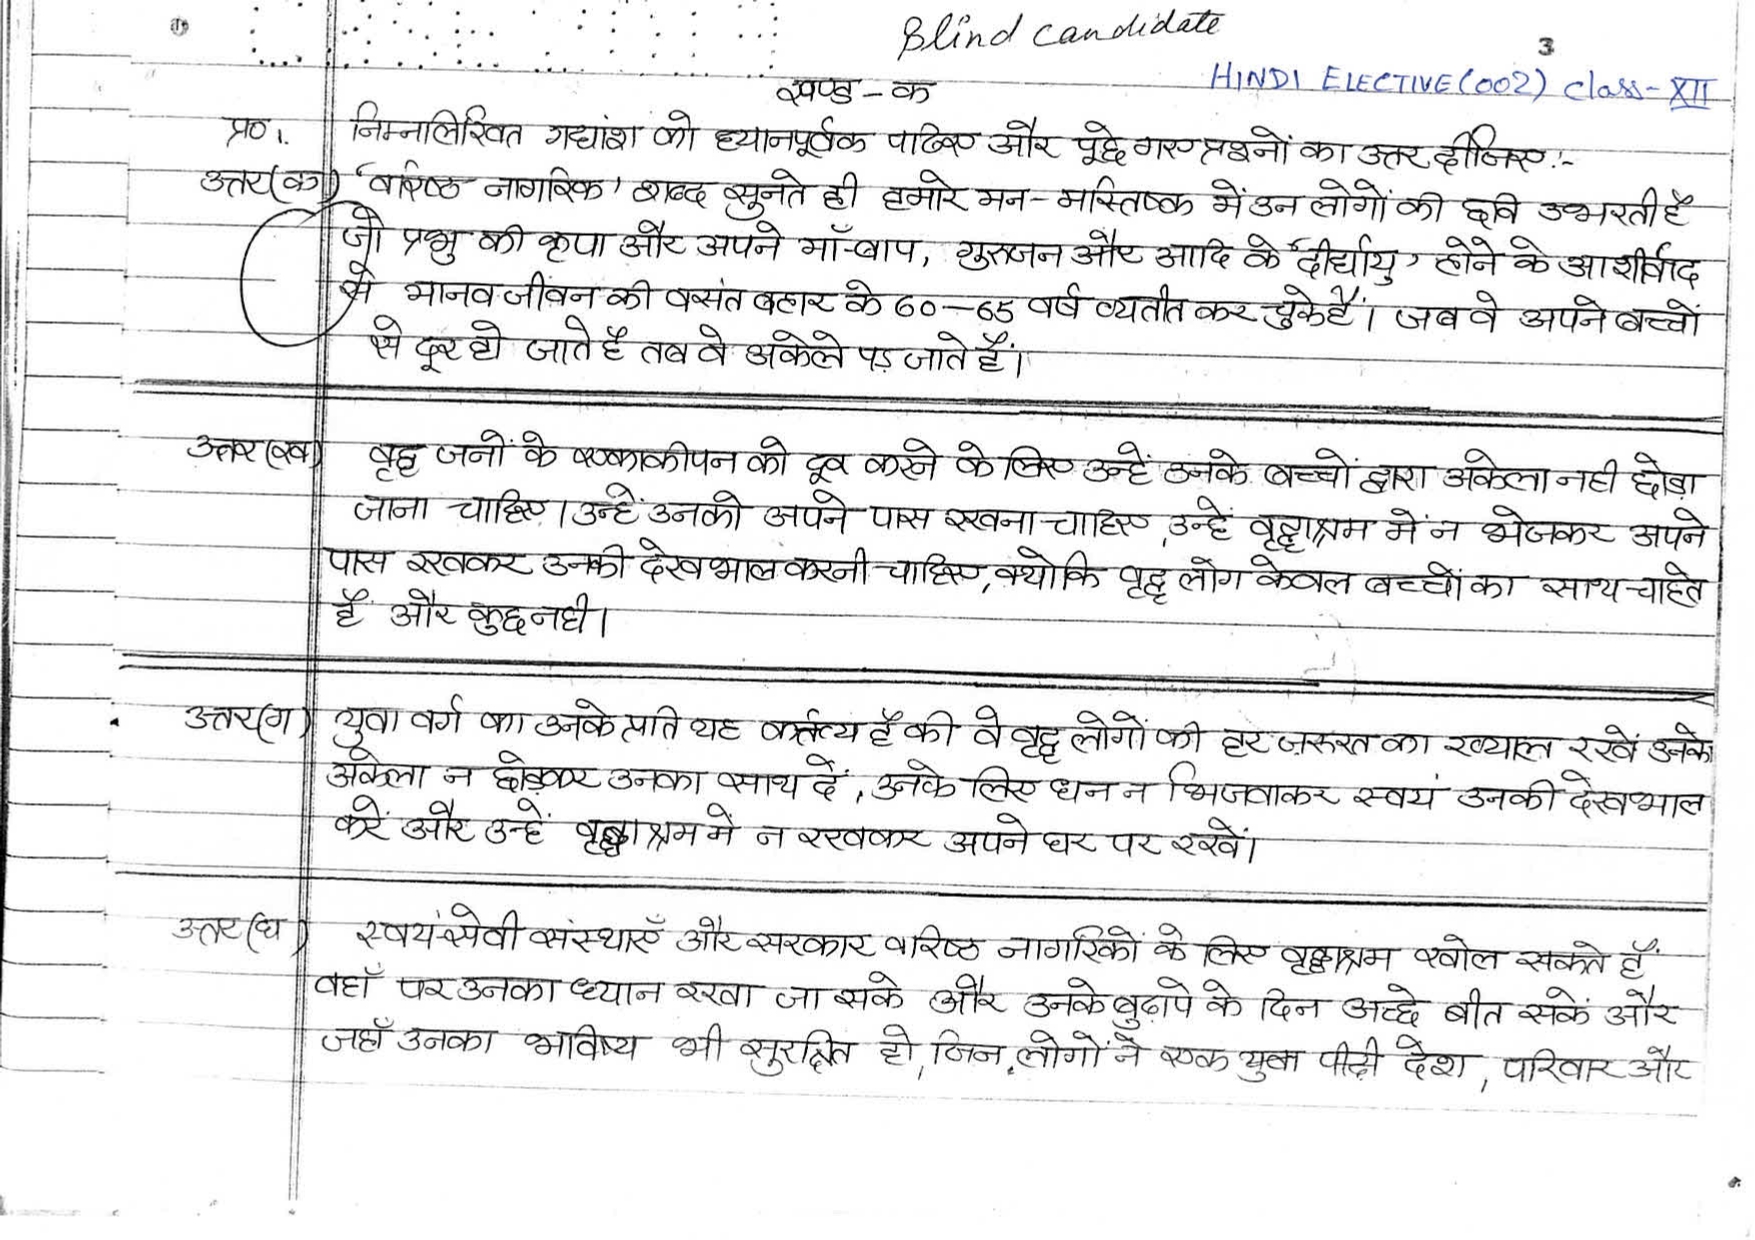 Blind candidate
3
HINDI ELECTIVE (002) Class-XII
खण्ड-क
प्र०1. निम्नलिखित गद्यांश को ध्यानपूर्वक पढिए और पूछे गए प्रश्नों का उत्तर दीजिए:-
उत्तर(क) 'वरिष्ठ नागरिक' शब्द सुनते ही हमारे मन-मस्तिष्क में उन लोगों की छवि उभरती है
जो प्रभु की कृपा और अपने माँ-बाप, गुरुजन और आदि के 'दीर्घायु' होने के आशीर्वाद
से मानव जीवन की वसंत बहार के 60-65 वर्ष व्यतीत कर चुके हैं। जब वे अपने बच्चों
से दूर हो जाते है तब वे अकेले पड़ जाते हैं।
उत्तर(ख) वृद्ध जनों के एकाकीपन को दूर करने के लिए उन्हें उनके बच्चों द्वारा अकेला नही छोड़ा
जाना चाहिए। उन्हें उनको अपने पास रखना चाहिए, उन्हें वृद्धाश्रम में न भेजकर अपने
पास रखकर उनकी देखभाल करनी चाहिए, क्योकि वृद्ध लोग केवल बच्चों का साथ चाहते
हैं और कुछ नही।
उत्तर(ग) युवा वर्ग का उनके प्रति यह कर्त्तव्य है की वे वृद्ध लोगों की हर ज़रुरत का ख्याल रखें उनके
अकेला न छोड़कर उनका साथ दें, उनके लिए धन न भिजवाकर स्वयं उनकी देखभाल
करें और उन्हें वृद्धाश्रम में न रखकर अपने घर पर रखें।
उत्तर(घ) स्वयंसेवी संस्थाएँ और सरकार वरिष्ठ नागरिकों के लिए वृद्धाश्रम खोल सकते हैं
वहाँ पर उनका ध्यान रखा जा सके और उनके बुढ़ापे के दिन अच्छे बीत सकें और
जहाँ उनका भविष्य भी सुरक्षित हो, जिन लोगों ने एक युवा पीढ़ी देश, परिवार और